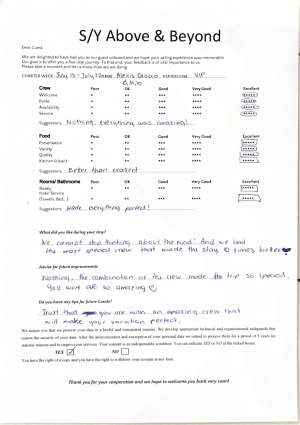 S/Y Above & Beyond
Dear Guest,
We are delighted to have had you as our guest onboard and we hope your sailing experience was memorable.
Our goal is to offer you a five star journey. To that end, your feedback is of vital importance to us.
Please take a moment and let us know how we are doing.
CHARTER WEEK: July 15 - July 22 NAME: Alexis
Crew Poor OK Good Very Good Excellent
Welcome
Polite
Availability
Service
Suggestions: Nothing, Everything was amazing!
Food Poor OK Good Very Good Excellent
Presentation
Variety
Quality
Kitchen (clean)
Suggestions: Better than excellent
Rooms/ Bathrooms Poor OK Good Very Good Excellent
Ready
Hotel Service
(Towels, Bed...)
Suggestions: Made everything perfect!
What did you like during your stay?
We cannot stop thinking about the food! And we had
the most special crew that made the stay times better
Advice for future improvements:
Nothing, the combination of the crew made the trip so special.
You were all so amazing
Do you have any tips for future Guests?
Trust that you are with an amazing crew that
will make your vacation perfect.
We assure you that we process your data in a lawful and transparent manner. We develop appropriate technical and organizational safeguards that
ensure the security of your data. After the anonymization and encryption of your personal data we intend to process them for a period of 5 years for
statistic reasons and to improve our services. Your consent is an indispensable condition. You can indicate YES or NO at the ticked boxes.
YES NO
You have the right of a copy and you have the right to withdraw your consent at any time.
Thank you for your cooperation and we hope to welcome you back very soon!